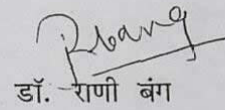 Rbang
डॉ. राणी बंग